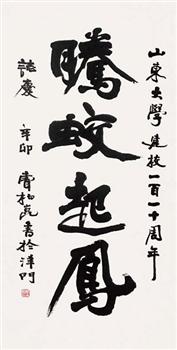 山東大學建校一百一十周年
騰蛟起鳳
誌慶
辛卯 曹柏崑書於津門